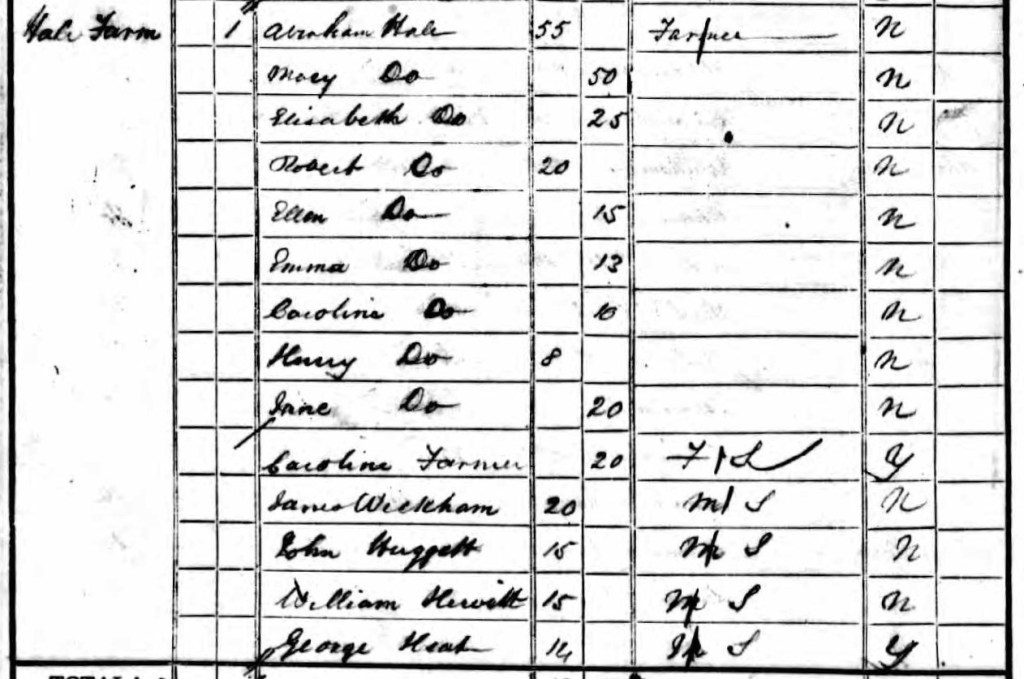 Hale Farm 1 Abraham Hale 55 Farmer N
Mary Do 50 N
Elisabeth Do 25 N
Robert Do 20 N
Ellen Do 15 N
Emma Do 13 N
Caroline Do 10 N
Henry Do 8 N
Jane Do 20 N
Caroline Farmer 20 F S Y
James Wickham 20 M S N
John Huggett 15 M S N
William Hewitt 15 M S N
George 14 M S Y